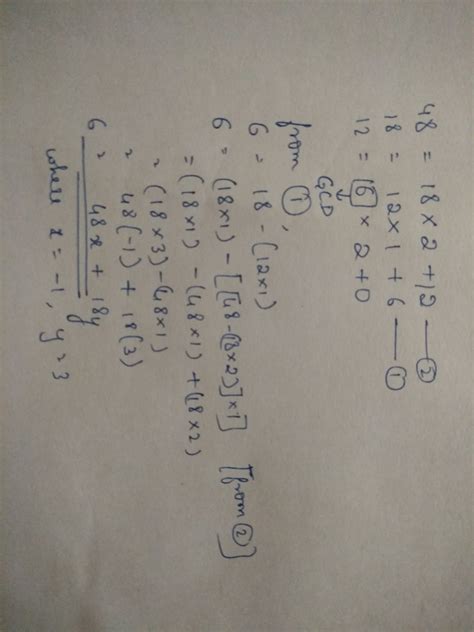 48 = 18 × 2 + 12 — ②
18 = 12 × 1 + 6 — ①
12 = 6 × 2 + 0
GCD
from ①,
6 = 18 - (12×1)
6 = (18×1) - [[48-(18×2)]×1] [from ②]
= (18×1) - (48×1) + (18×2)
= (18×3) - (48×1)
= 48(-1) + 18(3)
6 = 48x + 18y
where x = -1, y = 3